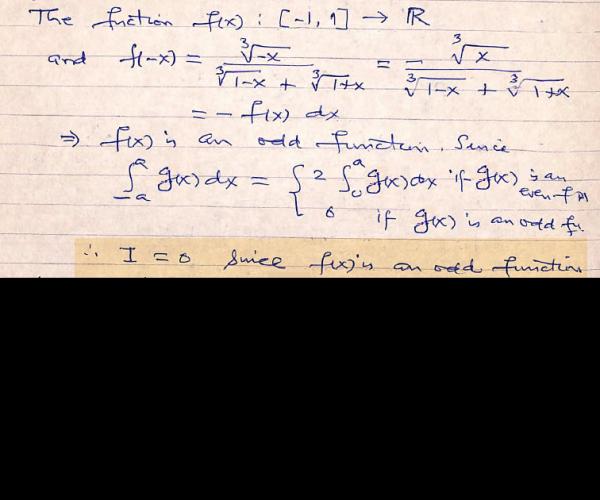 The function f(x) : [-1, 1] → ℝ
and f(-x) = ∛(-x) / (∛(1-x) + ∛(1+x)) = - ∛x / (∛(1-x) + ∛(1+x))
= - f(x) dx
⇒ f(x) is an odd function. Since
∫_{-a}^{a} g(x) dx = { 2 ∫_0^a g(x) dx if g(x) is an even fn
0 if g(x) is an odd fn.
∴ I = 0 Since f(x) is an odd function